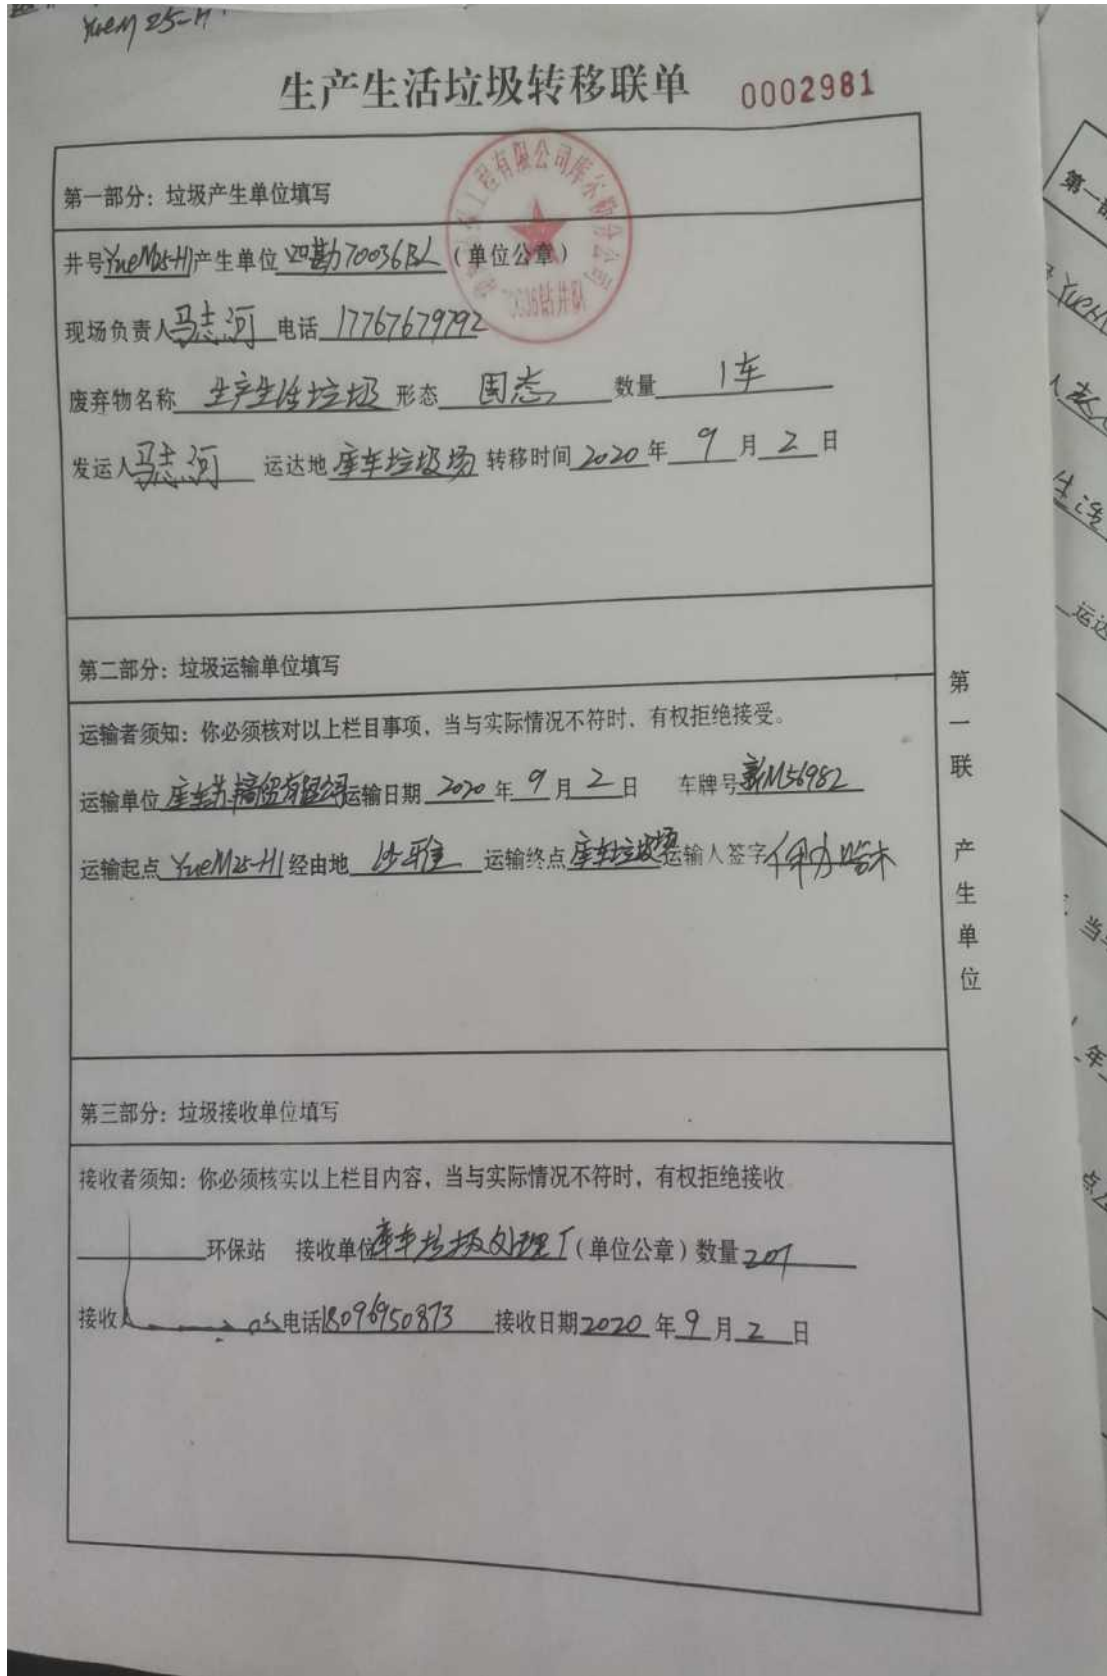 YueM 25-H
生产生活垃圾转移联单 0002981
第一部分：垃圾产生单位填写
井号YueM25-H1产生单位 四勘70036队 （单位公章）
现场负责人马志河 电话 17767679792
废弃物名称 生产生活垃圾 形态 固态 数量 1车
发运人马志河 运达地 库车垃圾场 转移时间 2020 年 9 月 2 日
第二部分：垃圾运输单位填写
运输者须知：你必须核对以上栏目事项，当与实际情况不符时，有权拒绝接受。
运输单位 运输日期 2020 年 9 月 2 日 车牌号 新M56982
运输起点 YueM25-H1 经由地 沙雅 运输终点 库车垃圾场 运输人签字
第三部分：垃圾接收单位填写
接收者须知：你必须核实以上栏目内容，当与实际情况不符时，有权拒绝接收
环保站 接收单位库车垃圾处理厂（单位公章）数量 20T
接收人 电话18096950873 接收日期2020 年 9 月 2 日
第一联 产生单位